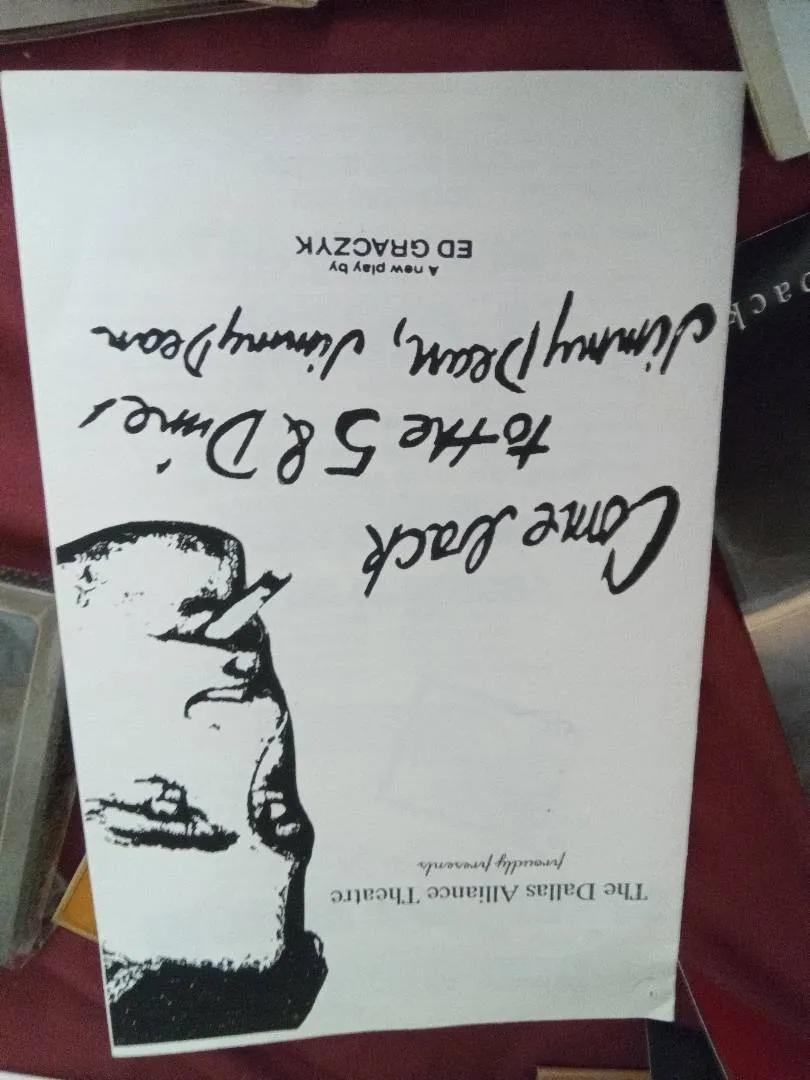 The Dallas Alliance Theatre
proudly presents
Come back
to the 5 & Dime,
Jimmy Dean, Jimmy Dean
A new play by
ED GRACZYK
back